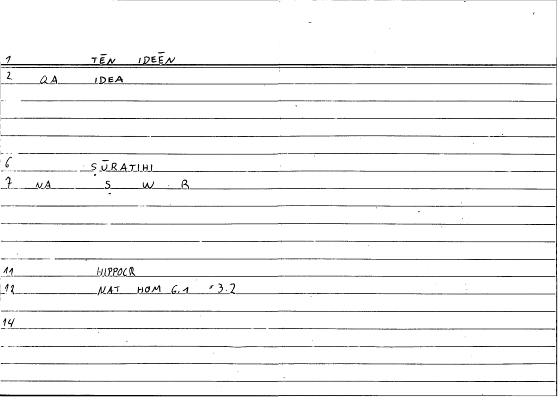 1 TĒN IDEĒN
2 QA IDEA
6 ṢŪRATIHI
7 NA Ṣ W R
11 HIPPOCR
12 NAT HOM 6.1 3.2
14